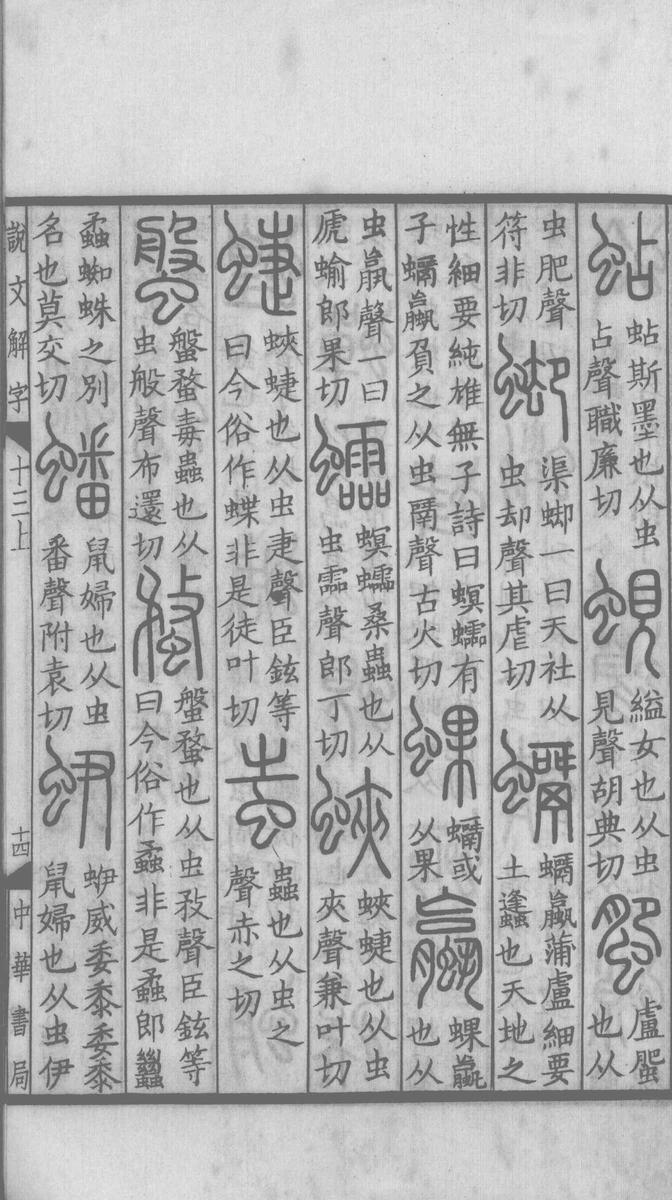 蛅
蛅斯墨也从虫
占聲職廉切
蜆
縊女也从虫
見聲胡典切
蜰
盧蜰
也从
虫肥聲
符非切
渠𧊜一曰天社从
虫却聲其虐切
蠃蒲盧細要
土蠭也天地之
性細要純雄無子詩曰螟𧕅有
子蠃負之从虫聲古火切
蜾
或
从果
蠃
蜾蠃
也从
虫𣎆聲一曰
虒蝓郎果切
𧕅
螟𧕅桑蟲也从
虫霝聲郎丁切
蛺
蛺蜨也从虫
夾聲兼叶切
蜨
蛺蜨也从虫疌聲臣鉉等
曰今俗作蝶非是徒叶切
蚩
蟲也从虫之
聲赤之切
螌
螌蝥毒蟲也从
虫般聲布還切
蝥
螌蝥也从虫敄聲臣鉉等
曰今俗作蟊非是蟊郎
蟊蜘蛛之別
名也莫交切
蟠
鼠婦也从虫
番聲附袁切
蛜
蛜威委黍委黍
鼠婦也从虫伊
說文解字 十三上 十四 中華書局